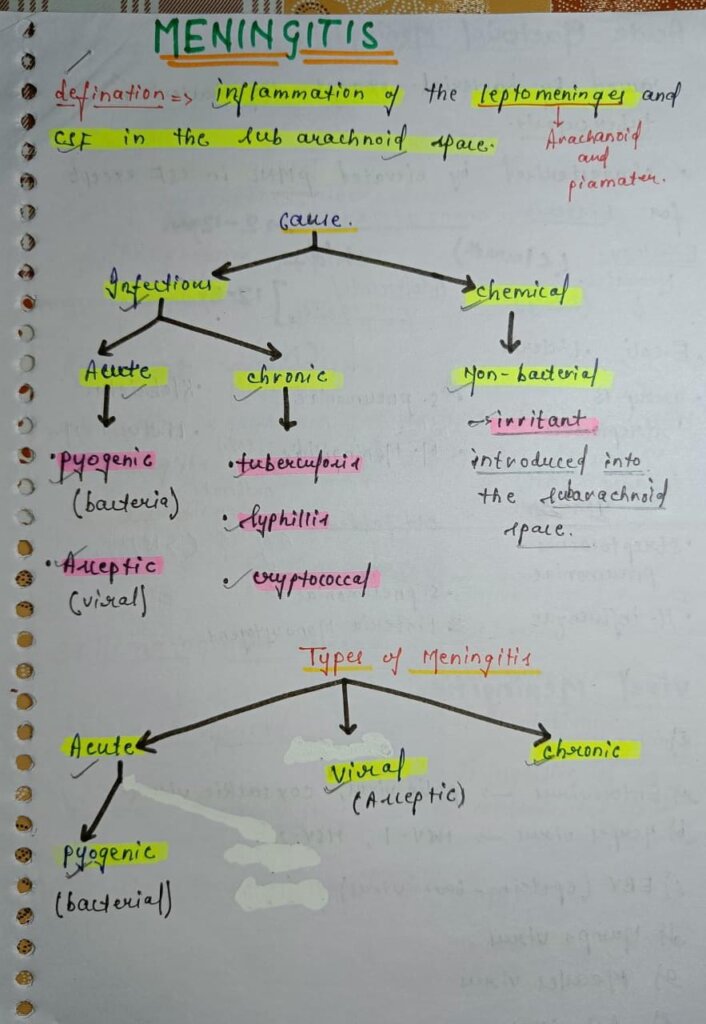 MENINGITIS
defination => inflammation of the leptomeninges and
CSF in the sub arachnoid space.
Arachanoid
and
piamater.
Cause.
Infectious
chemical
Acute
chronic
Non-bacterial
• pyogenic
(bacteria)
• Aseptic
(viral)
• tuberculosis
• Syphillis
• cryptococcal
→ irritant
introduced into
the subarachnoid
space.
Types of Meningitis
Acute
Viral
(Aseptic)
chronic
pyogenic
(bacterial)